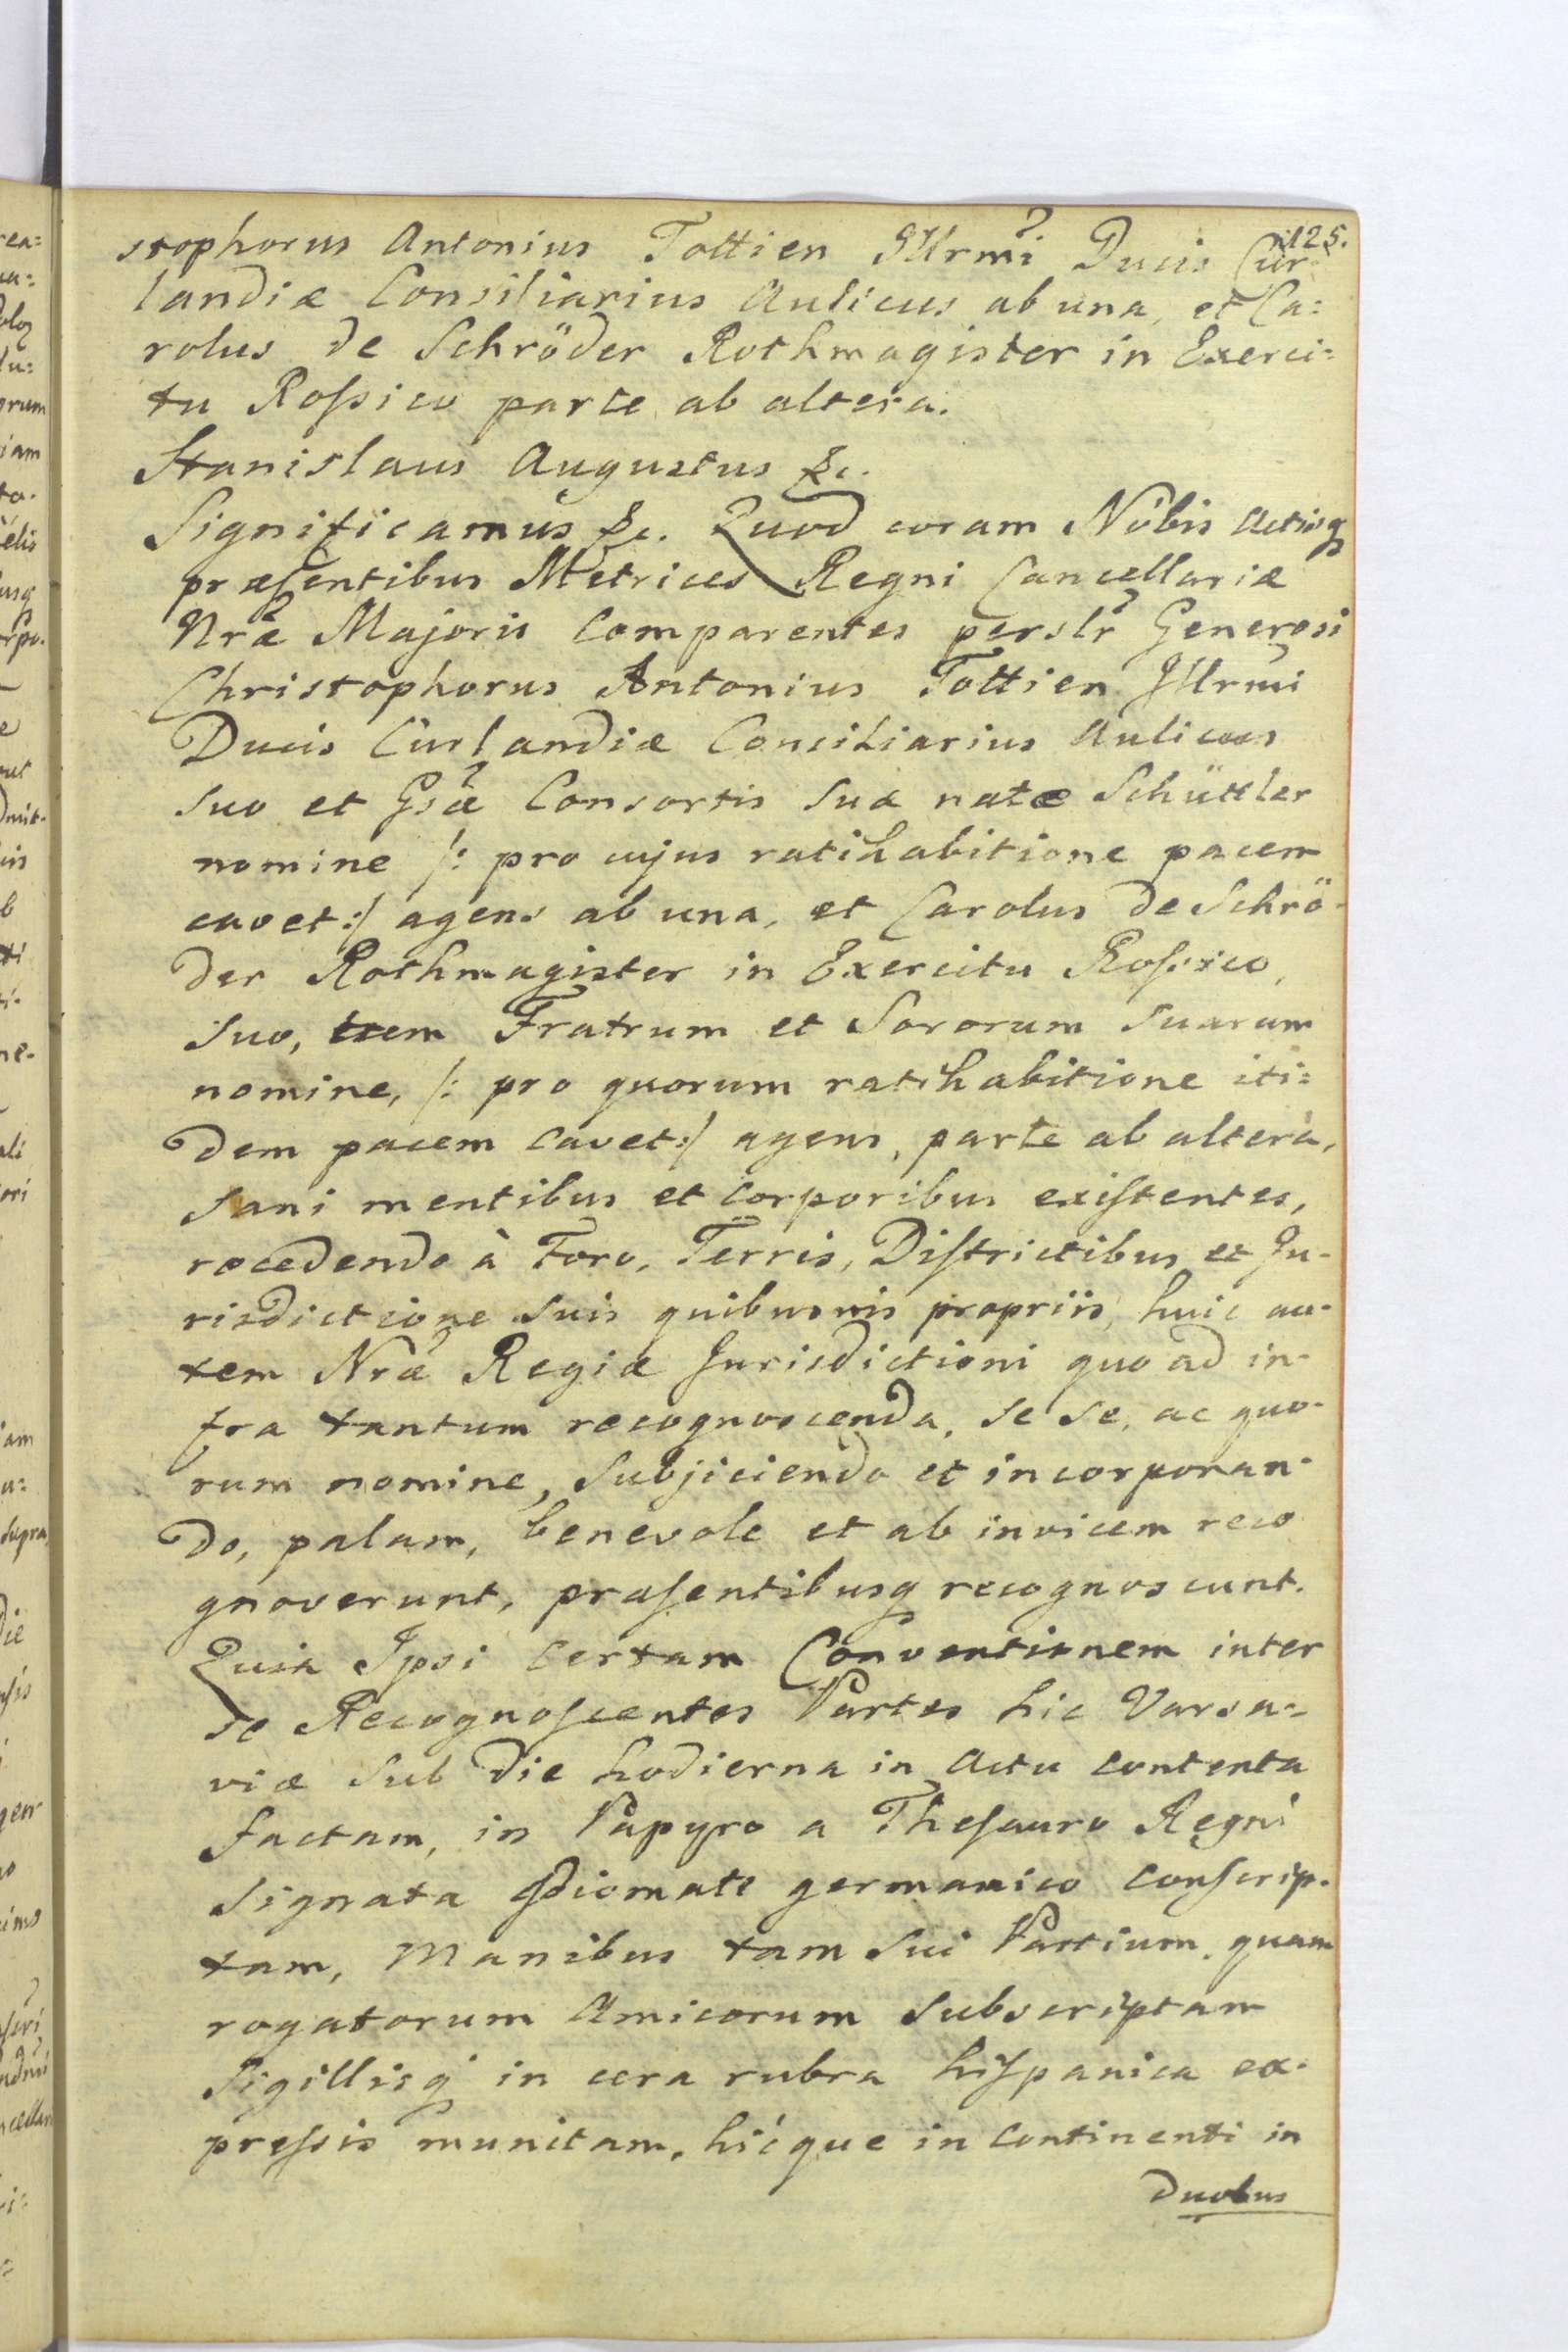 125.
stophorus Antonius Tottien Illrmi Ducis Cur-
landiæ Consiliarius Aulicus ab una, et Ca=
rolus de Schröder Rothmagister in Exerci=
tu Roſsico parte ab altera.
Stanislaus Augustus &c.
Significamus &c. Quod coram Nobis Actisq
præſentibus Metrices Regni Cancellariæ
Nræ Majoris Comparentes perslr Generosi
Christophorus Antonius Tottien Illrmi
Ducis Curlandiæ Consiliarius Aulicus
suo et Gsæ Consortis suæ natæ Schüttler
nomine /: pro cujus ratihabitione pacem
cavet :/ agens ab una, et Carolus de Schrö-
der Rothmagister in Exercitu Roſsico,
suo, tum Fratrum et Sororum suarum
nomine, /: pro quorum ratihabitione iti=
dem pacem cavet :/ agens, parte ab altera,
sani mentibus et corporibus exiſtentes,
recedendo à Foro, Terris, Diſtrictibus et Ju-
risdictione suis quibusvis propriis, huic au-
tem Nræ Regiæ Jurisdictioni quo ad in-
fra tantum recognoscenda, se se, ac quo-
rum nomine, subjiciendo et incorporan-
do, palam, benevole et ab invicem reco
gnoverunt, præſentibusq recognoscunt.
Quia Ipsi certam Conventionem inter
se Recognoſcentes Partes hic Varsa=
viæ sub die hodierna in Actu contenta
factam, in Papyro a Theſauro Regni
signata Idiomate germanico conſcrip-
tam, Manibus tam sui Partium, quam
rogatorum Amicorum subscriptam
Sigillisq in cera rubra hiſpanica ex-
preſsis munitam, hicque in continenti in
duobus